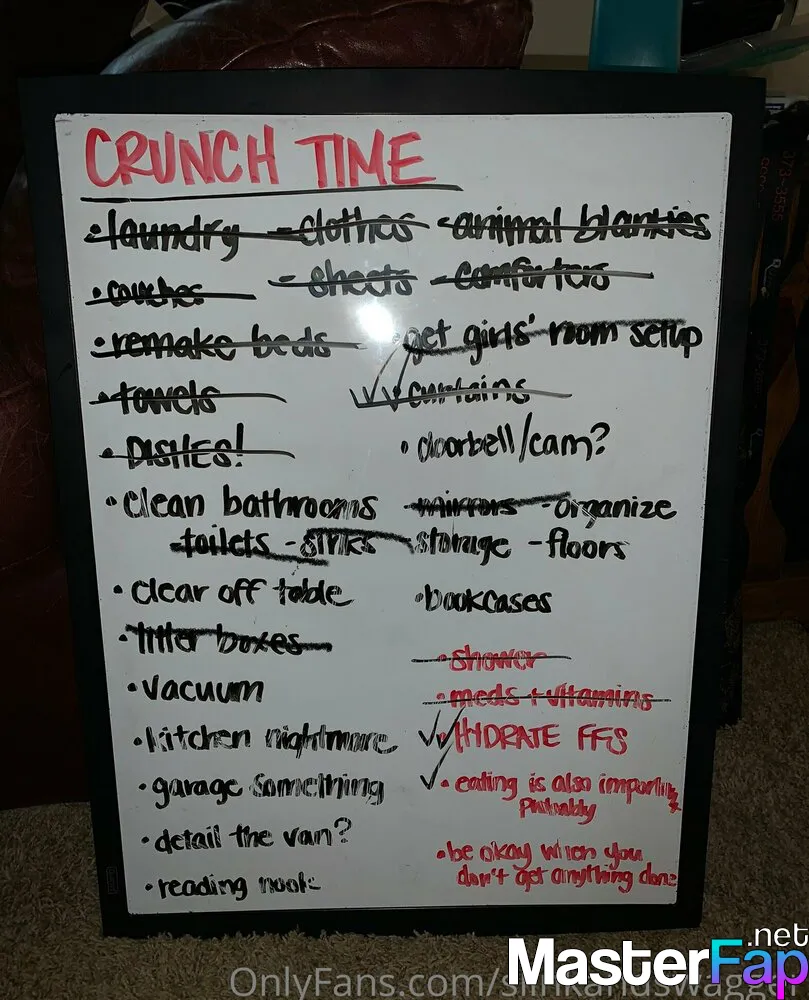 CRUNCH TIME
• laundry - clothes - animal blankies
• couches - sheets - comforters
• remake beds
• towels
• DISHES!
• get girls' room setup
• curtains
• doorbell/cam?
• clean bathrooms - mirrors - organize
toilets - sinks storage - floors
• clear off table
• litter boxes
• vacuum
• kitchen nightmare
• garage something
• detail the van?
• reading nook
• bookcases
• shower
• meds + vitamins
• HYDRATE FFS
• eating is also important
probably
• be okay when you
don't get anything done
373-3555
OnlyFans.com/
MasterFap.net